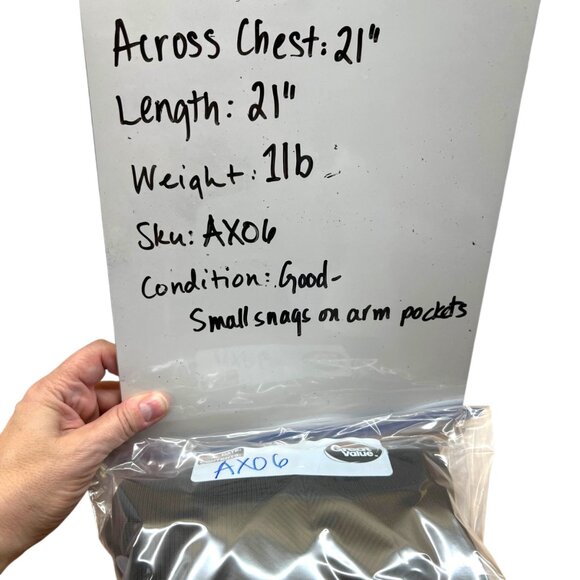 Across Chest: 21"
Length: 21"
Weight: 1lb
Sku: AX06
Condition: Good-
Small snags on arm pockets
Great Value
AX06